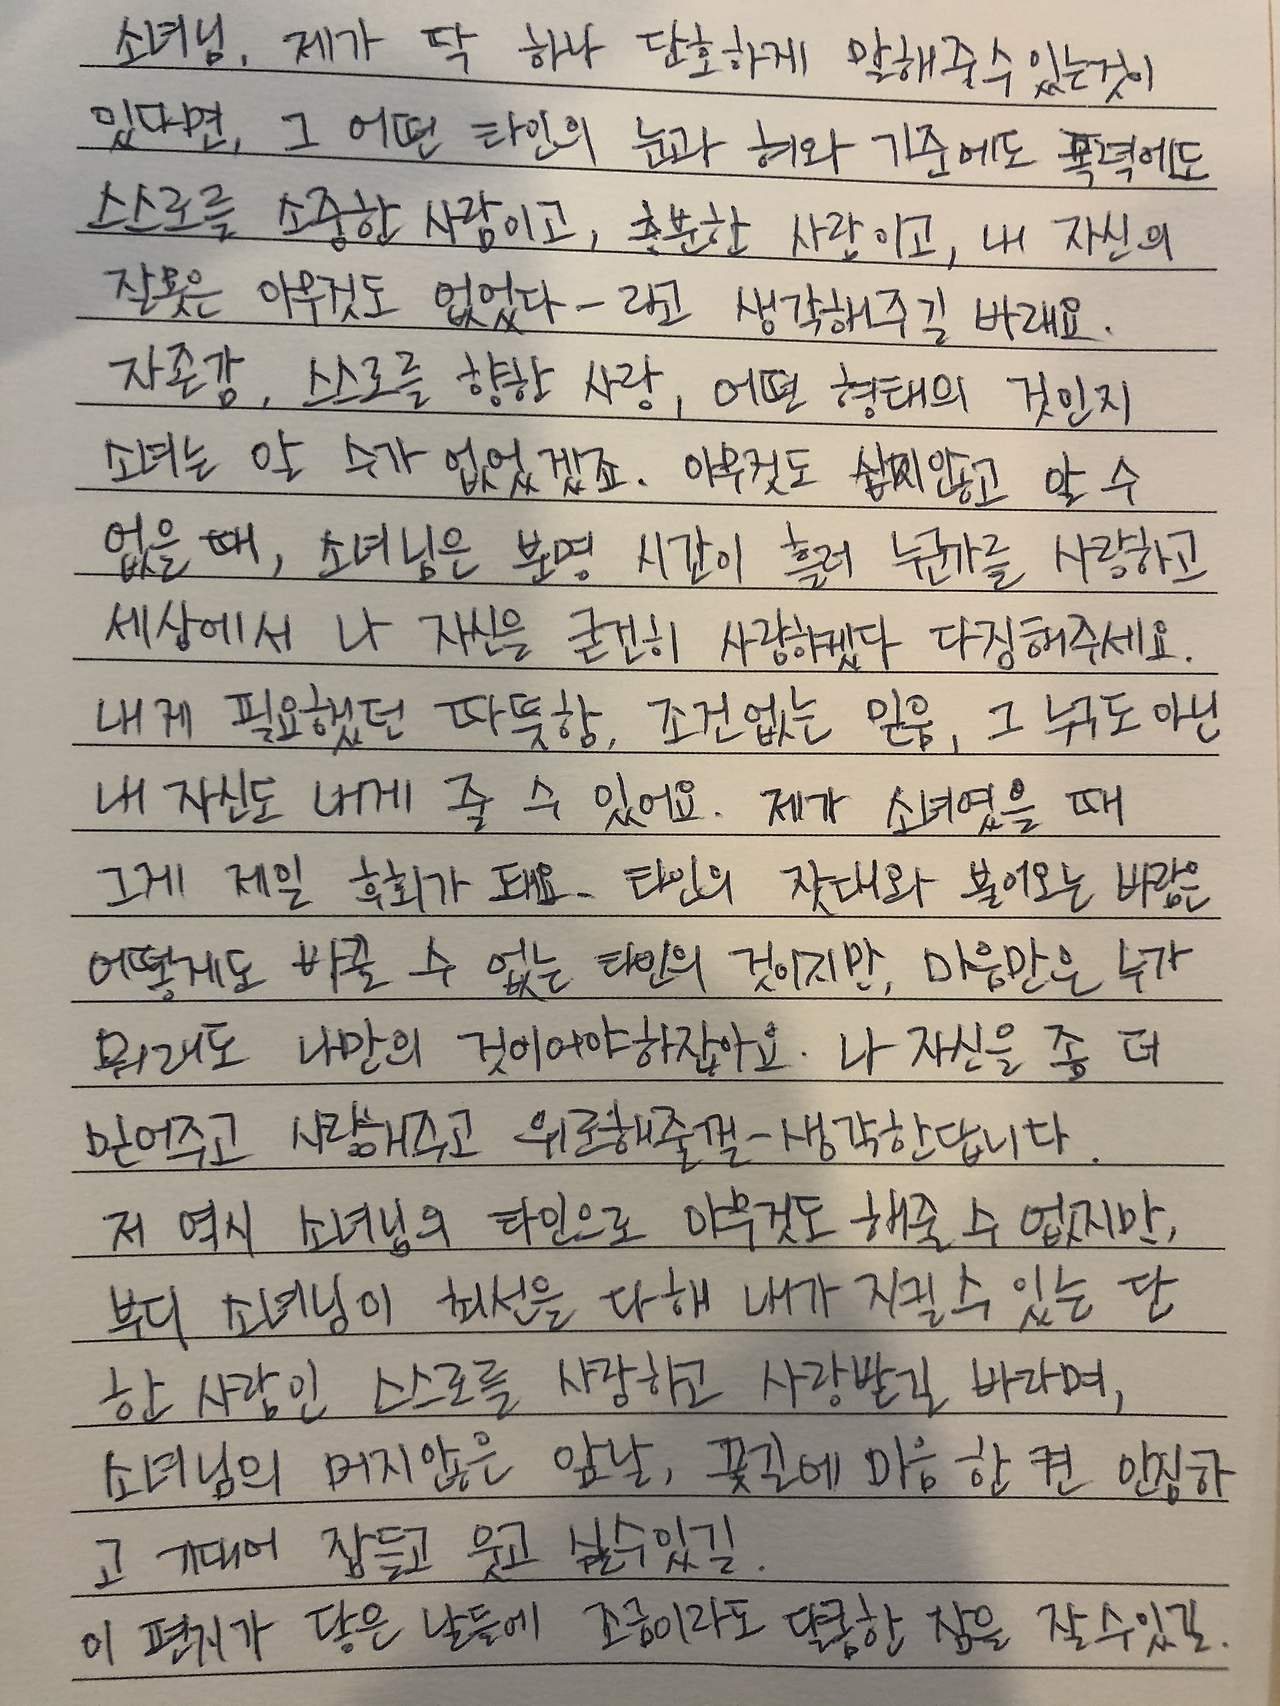 소녀님, 제가 딱 하나 단호하게 말해줄수있는것이
있다면, 그 어떤 타인의 눈과 혀와 기준에도 폭력에도
스스로를 소중한 사람이고, 충분한 사람이고, 내 자신의
잘못은 아무것도 없었다- 라고 생각해주길 바래요.
자존감, 스스로를 향한 사랑, 어떤 형태의 것인지
소녀는 알 수가 없었겠죠. 아무것도 쉽지않고 알 수
없을 때, 소녀님은 분명 시간이 흘러 누군가를 사랑하고
세상에서 나 자신을 굳건히 사랑하겠다 다짐해주세요.
내게 필요했던 따뜻함, 조건없는 믿음, 그 누구도 아닌
내 자신도 내게 줄 수 있어요. 제가 소녀였을 때
그게 제일 후회가 돼요- 타인의 잣대와 불어오는 바람은
어떻게도 바꿀 수 없는 타인의 것이지만, 마음만은 누가
뭐래도 나만의 것이어야하잖아요. 나 자신을 좀 더
믿어주고 사랑해주고 위로해줄껄-생각한답니다.
저 역시 소녀님의 타인으로 아무것도 해줄 수 없지만,
부디 소녀님이 최선을 다해 내가 지킬수 있는 단
한 사람인 스스로를 사랑하고 사랑받길 바라며,
소녀님의 머지않은 앞날, 꽃길에 마음 한 켠 안심하
고 기대어 잠들고 웃고 쉴수있길.
이 편지가 닿은 날들에 조금이라도 달콤한 잠을 잘수있길.